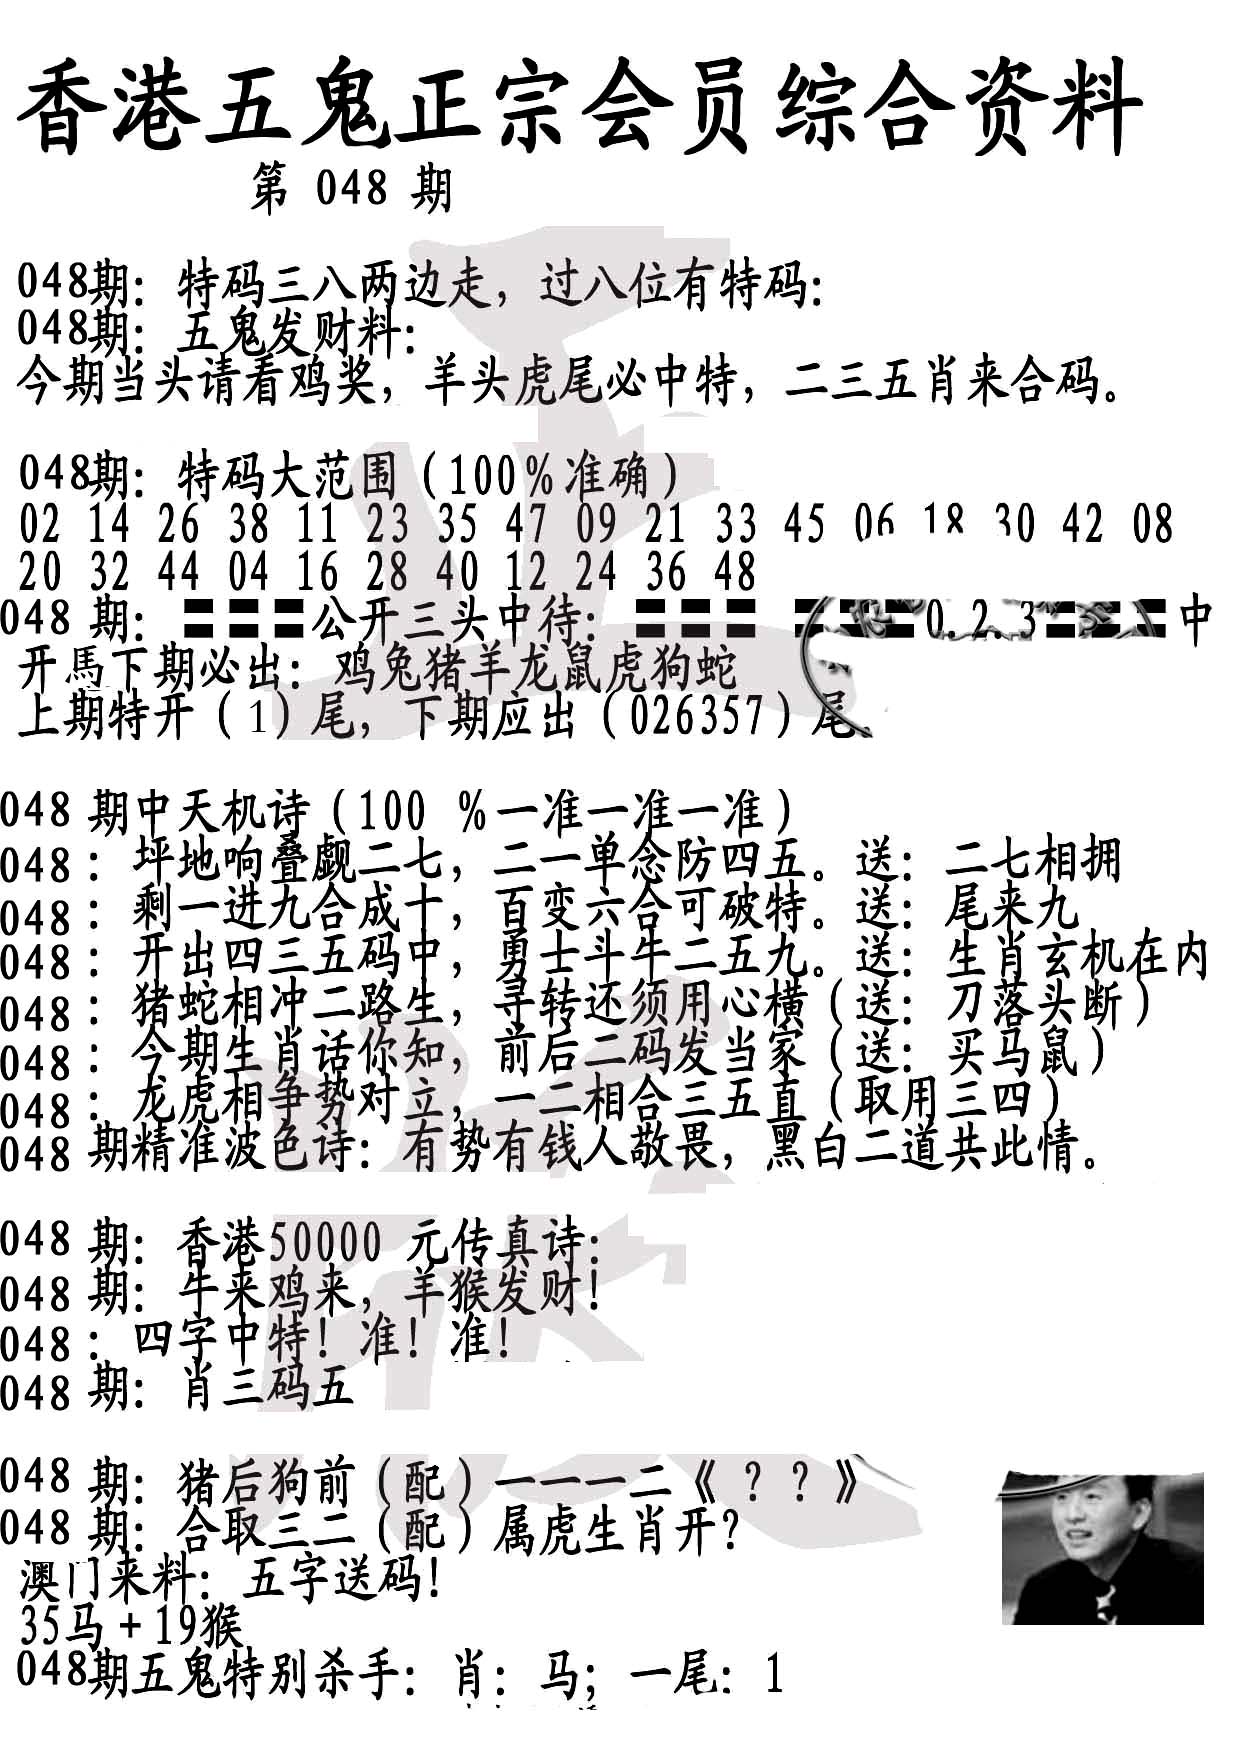 香港五鬼正宗会员综合资料
第 048 期
048期：特码三八两边走，过八位有特码：
048期：五鬼发财料：
今期当头请看鸡奖，羊头虎尾必中特，二三五肖来合码。
048期：特码大范围（100%准确）
02 14 26 38 11 23 35 47 09 21 33 45 06 18 30 42 08
20 32 44 04 16 28 40 12 24 36 48
048 期：〓〓〓公开三头中待：〓〓〓 〓〓〓0.2.3〓〓〓中
开馬下期必出：鸡兔猪羊龙鼠虎狗蛇
上期特开（1）尾，下期应出（026357）尾。
048 期中天机诗（100 %一准一准一准）
048：坪地响叠觑二七，二一单念防四五。送：二七相拥
048：剩一进九合成十，百变六合可破特。送：尾来九
048：开出四三五码中，勇士斗牛二五九。送：生肖玄机在内
048：猪蛇相冲二路生，寻转还须用心横（送：刀落头断）
048：今期生肖话你知，前后二码发当家（送：买马鼠）
048：龙虎相争势对立，一二相合三五直（取用三四）
048 期精准波色诗：有势有钱人敬畏，黑白二道共此情。
048 期：香港50000 元传真诗：
048 期：牛来鸡来，羊猴发财！
048：四字中特！准！准！
048 期：肖三码五
048 期：猪后狗前（配）一一一二《？？》
048 期：合取三二（配）属虎生肖开？
澳门来料：五字送码！
35马+19猴
048期五鬼特别杀手：肖：马；一尾：1